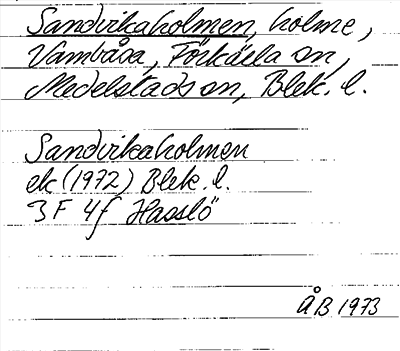 Sandvikaholmen, holme,
Vambåsa, Förkärla sn,
Medelstads sn, Blek. l.
Sandvikaholmen
ek (1972) Blek. l.
3F 4f Hasslö
ÅB 1973